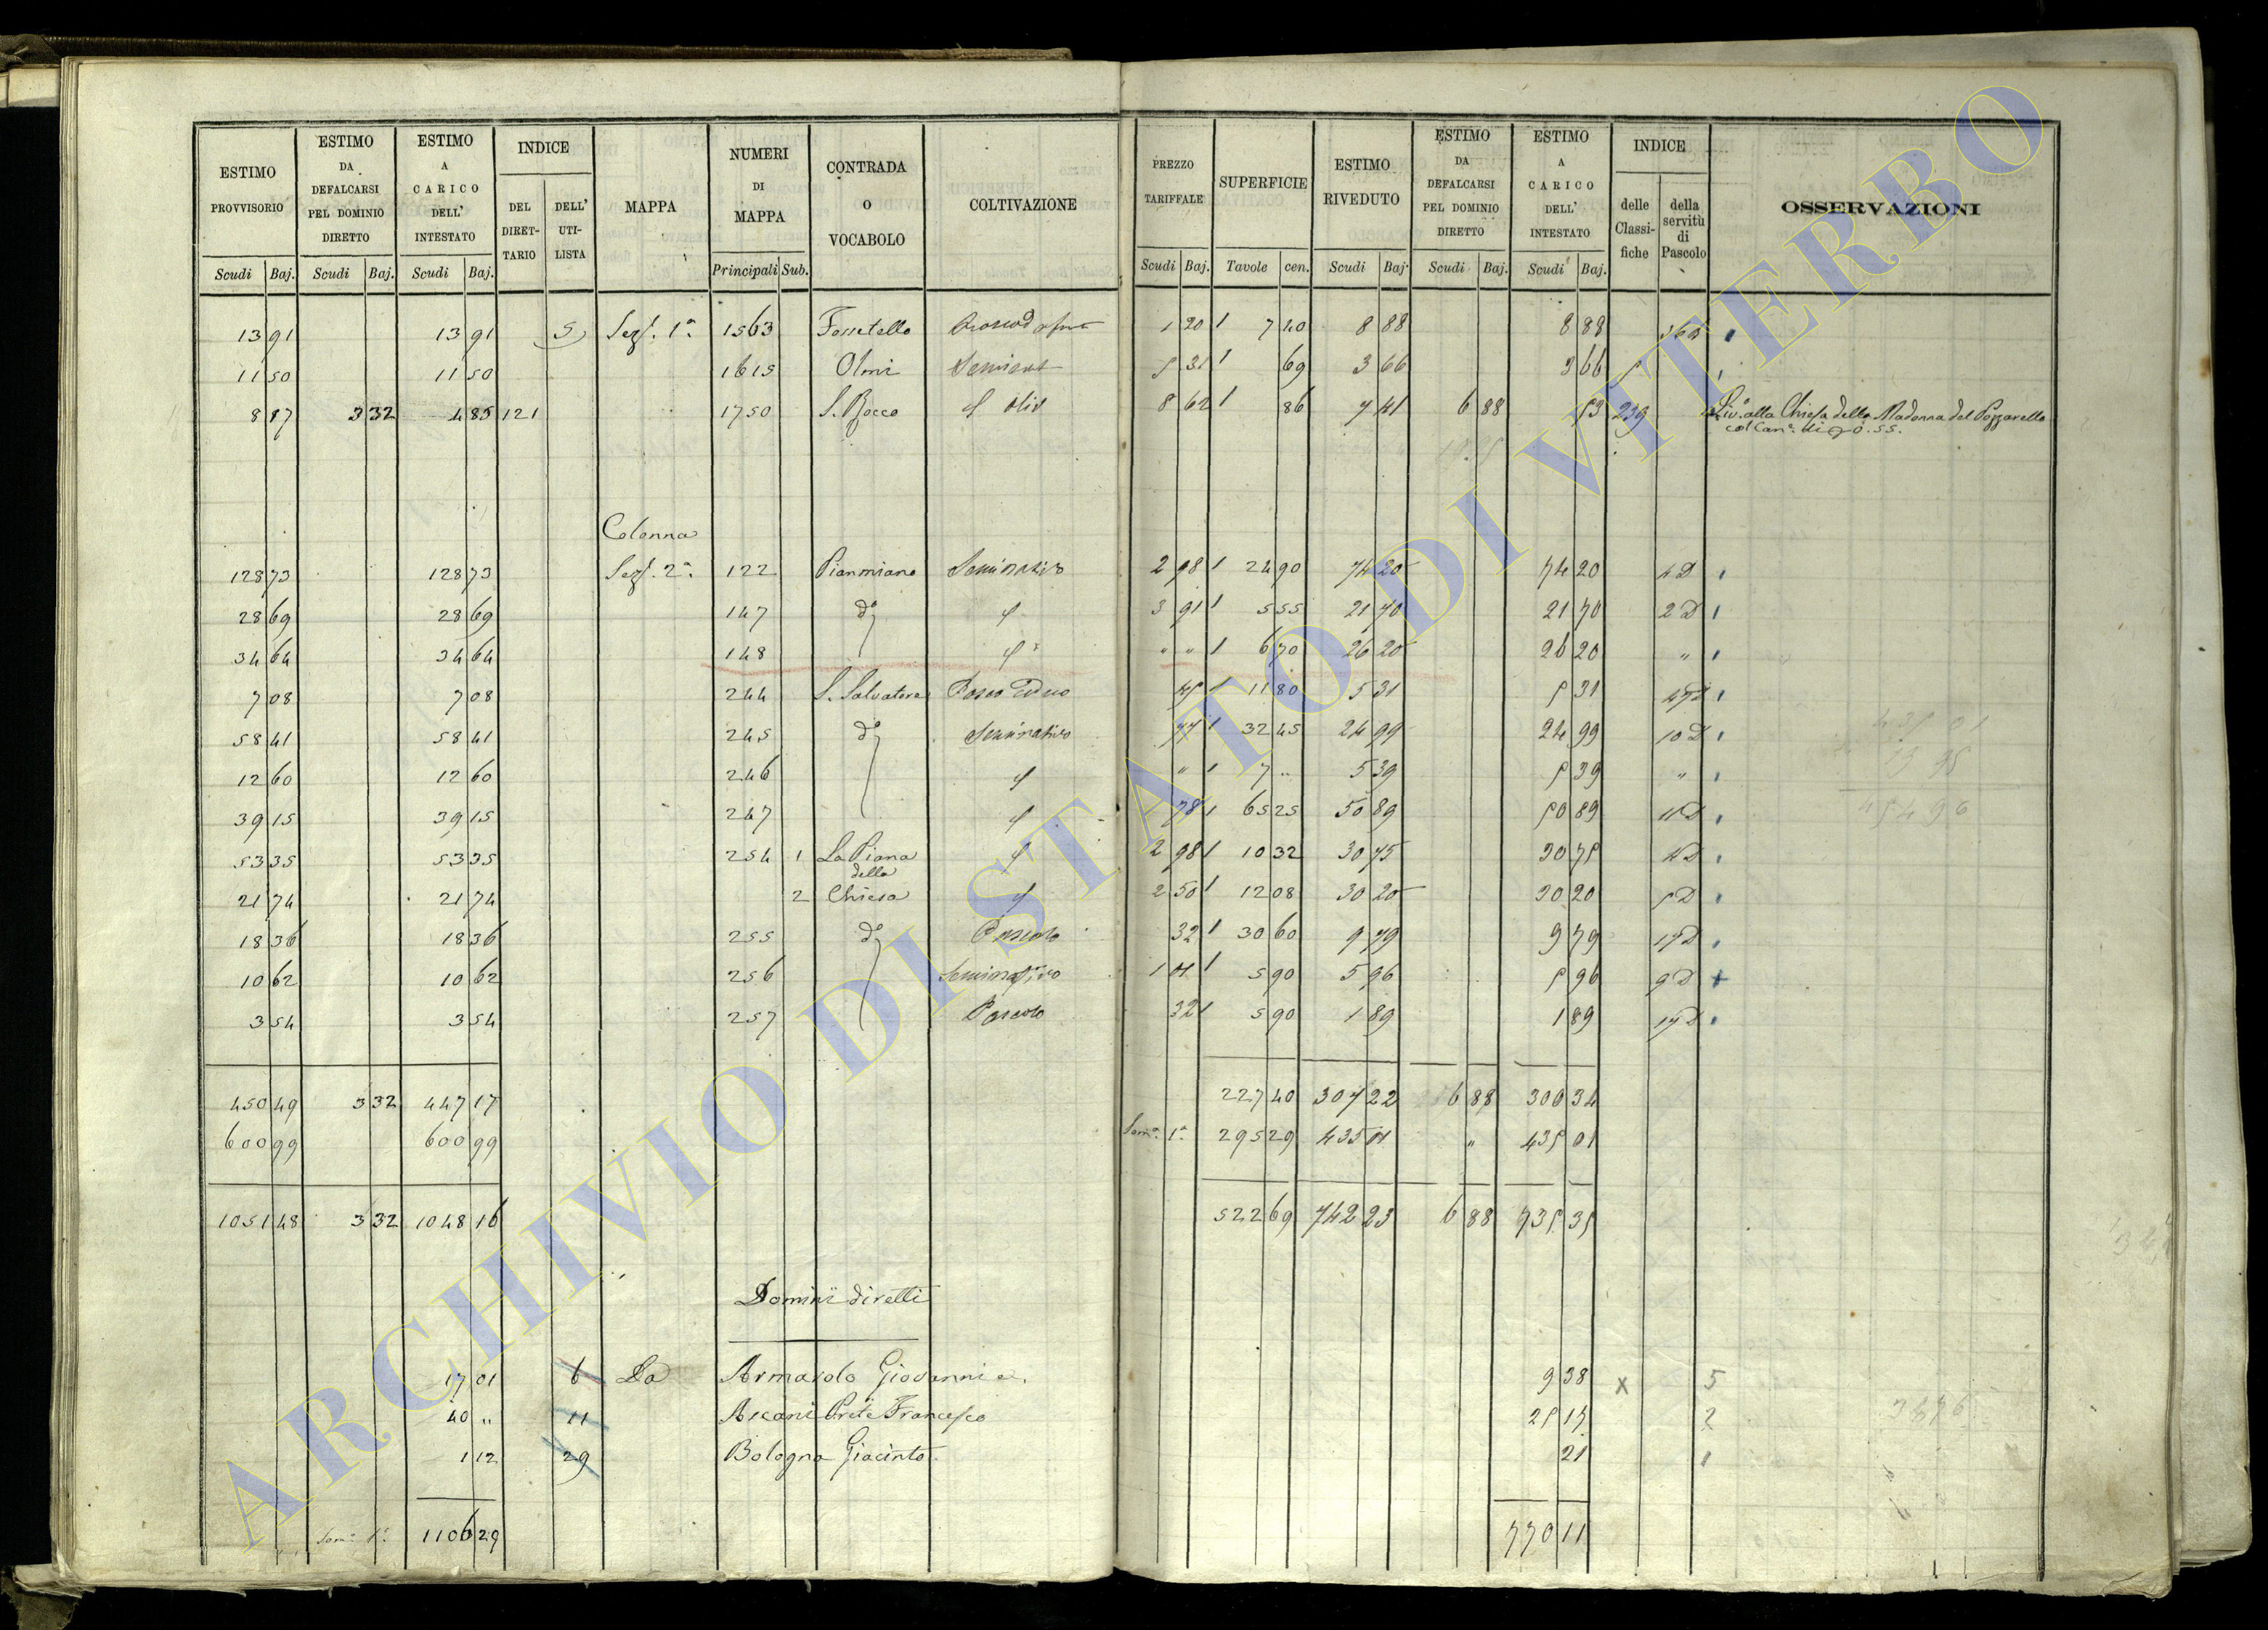 ESTIMO PROVVISORIO | ESTIMO DA DEFALCARSI PEL DOMINIO DIRETTO | ESTIMO A CARICO DELL' INTESTATO | INDICE | MAPPA | NUMERI DI MAPPA | CONTRADA O VOCABOLO | COLTIVAZIONE | PREZZO TARIFFALE | SUPERFICIE | ESTIMO RIVEDUTO | ESTIMO DA DEFALCARSI PEL DOMINIO DIRETTO | ESTIMO A CARICO DELL' INTESTATO | INDICE | OSSERVAZIONI
DEL DIRETTARIO | DELL' UTILISTA | delle Classifiche | della servitù di Pascolo
Scudi Baj. | Scudi Baj. | Scudi Baj. | Principali Sub. | Scudi Baj. | Tavole cen. | Scudi Baj. | Scudi Baj. | Scudi Baj.
13 91 | 13 91 | 5 | Sez. 1a | 1563 | Fossetello | 1 20 | 7 40 | 8 88 | 8 88
11 50 | 11 50 | 1615 | Olmi | 5 31 | 69 | 3 66 | 3 66
8 87 | 3 32 | 4 85 | 121 | 1750 | S. Rocco | Oliv | 8 62 | 86 | 7 41 | 6 88 | 53 | 239 | Liv.o alla Chiesa della Madonna del Pozzarello
col Can.e di
Colonna
128 73 | 128 73 | Sez. 2a | 122 | Pianmiano | Seminativo | 2 98 | 24 90 | 74 20 | 74 20 | 4D
28 69 | 28 69 | 147 | do | 3 91 | 5 55 | 21 70 | 21 70 | 2D
34 64 | 34 64 | 148 | " " | 6 70 | 26 20 | 26 20 | "
7 08 | 7 08 | 244 | S. Salvatore | Bosco Ceduo | 45 | 11 80 | 5 31 | 5 31 | 47D
58 41 | 58 41 | 245 | do | Seminativo | 77 | 32 45 | 24 99 | 24 99 | 10D
12 60 | 12 60 | 246 | " | 7 " | 5 39 | 5 39 | "
39 15 | 39 15 | 247 | 78 | 65 25 | 50 89 | 50 89 | 11D
53 35 | 53 35 | 254 | 1 | La Piana della | 2 98 | 10 32 | 30 75 | 30 75 | 4D
21 74 | 21 74 | 2 | Chiesa | 2 50 | 12 08 | 30 20 | 30 20 | 5D
18 36 | 18 36 | 255 | do | Pascolo | 32 | 30 60 | 9 79 | 9 79 | 17D
10 62 | 10 62 | 256 | Seminativo | 1 01 | 5 90 | 5 96 | 5 96 | 9D
3 54 | 3 54 | 257 | Pascolo | 32 | 5 90 | 1 89 | 1 89 | 17D
450 49 | 3 32 | 447 17 | 227 40 | 307 22 | 6 88 | 300 34
600 99 | 600 99 | Som.a 1a | 295 29 | 435 01 | " | 435 01
1051 48 | 3 32 | 1048 16 | 522 69 | 742 23 | 6 88 | 735 35
Dominii diretti
17 01 | 6 | Da | Armaiolo Giovanni | 9 38 | x | 5
40 " | 11 | Ascani Prete Francesco | 25 17 | 2
1 12 | 29 | Bologna Giacinto | 21 | 1
Som.a 1a | 1106 29 | 770 11
ARCHIVIO DI STATO DI VITERBO